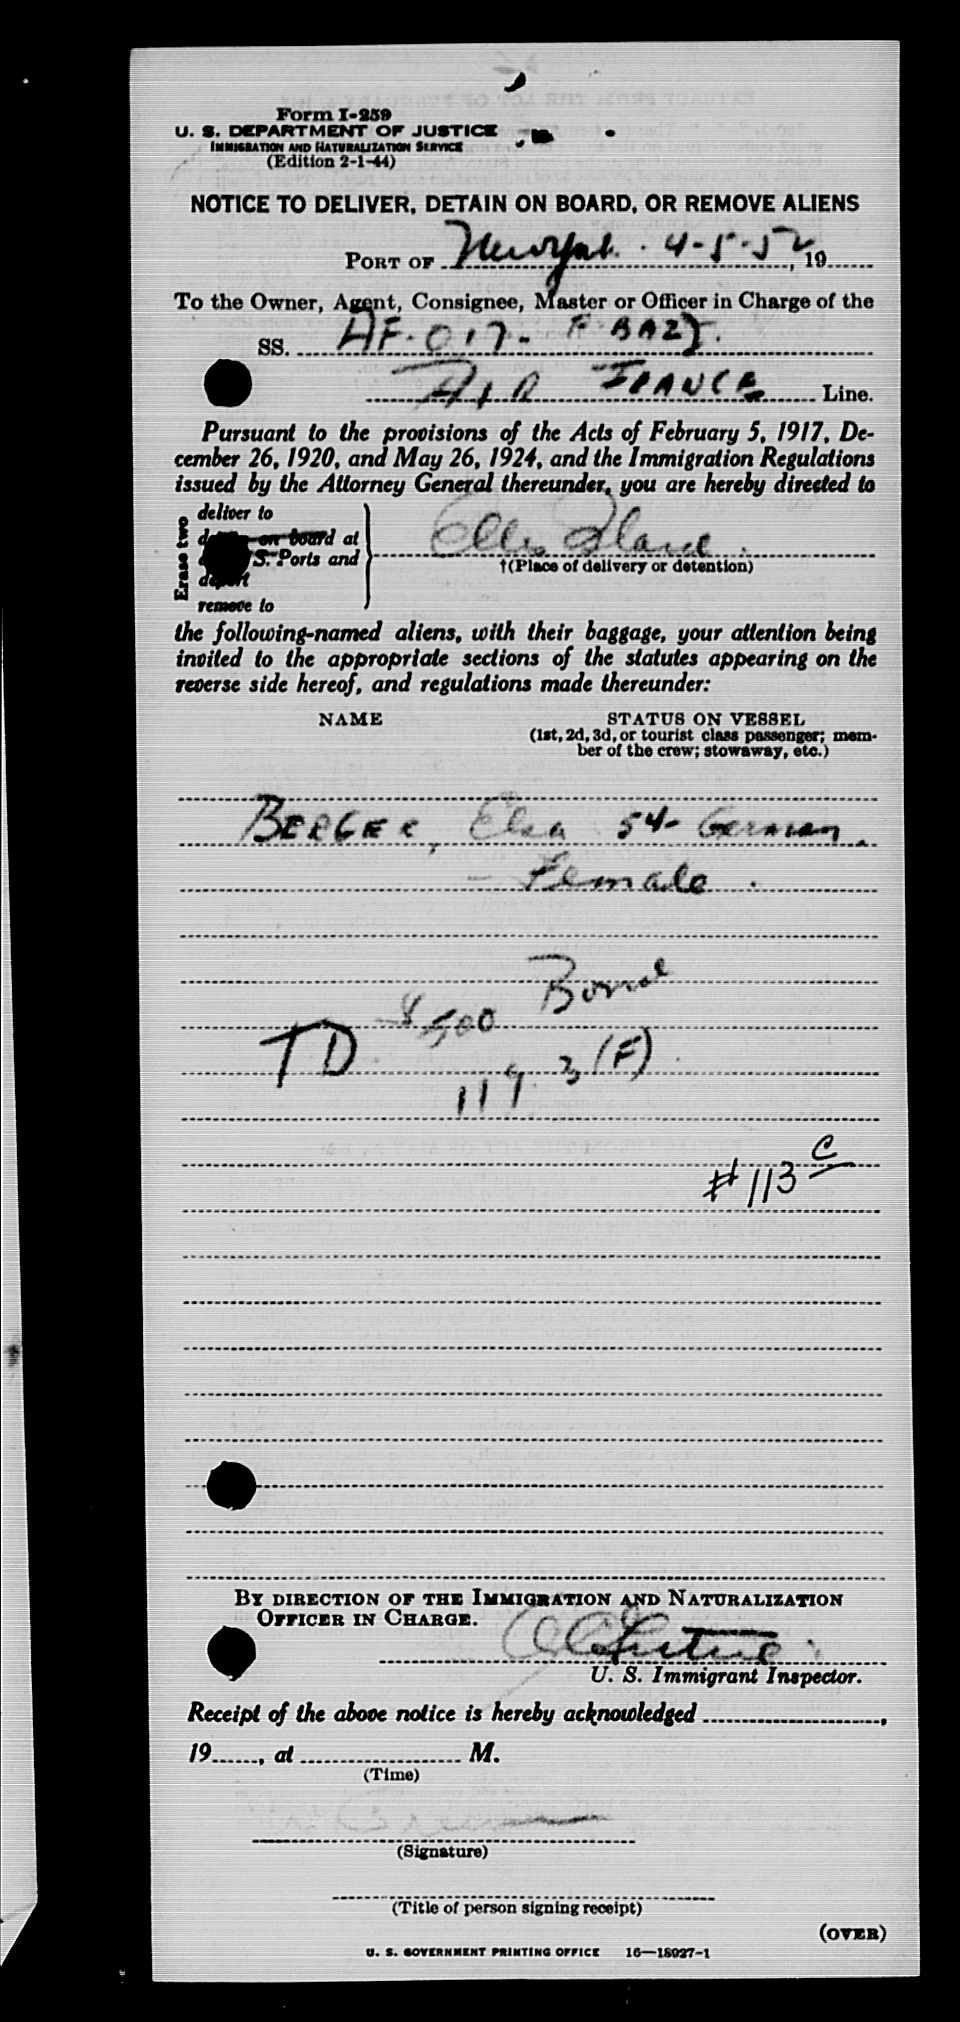 Form I-259
U. S. DEPARTMENT OF JUSTICE
IMMIGRATION AND NATURALIZATION SERVICE
(Edition 2-1-44)
NOTICE TO DELIVER, DETAIN ON BOARD, OR REMOVE ALIENS
PORT OF New York. 4-5-52, 19
To the Owner, Agent, Consignee, Master or Officer in Charge of the
SS. AF-017- F. BAZY.
AIR FRANCE Line.
Pursuant to the provisions of the Acts of February 5, 1917, De-
cember 26, 1920, and May 26, 1924, and the Immigration Regulations
issued by the Attorney General thereunder, you are hereby directed to
Erase two
deliver to
on board at
S. Ports and
deport
remove to
Ellis Island.
†(Place of delivery or detention)
the following-named aliens, with their baggage, your attention being
invited to the appropriate sections of the statutes appearing on the
reverse side hereof, and regulations made thereunder:
NAME STATUS ON VESSEL
(1st, 2d, 3d, or tourist class passenger; mem-
ber of the crew; stowaway, etc.)
BERGER, Elsa 54- German.
- Female.
$500 Bond
TD 117.3 (F)
#113 C
BY DIRECTION OF THE IMMIGRATION AND NATURALIZATION
OFFICER IN CHARGE.
U. S. Immigrant Inspector.
Receipt of the above notice is hereby acknowledged ,
19 , at M.
(Time)
(Signature)
(Title of person signing receipt)
(OVER)
U. S. GOVERNMENT PRINTING OFFICE 16—18027-1